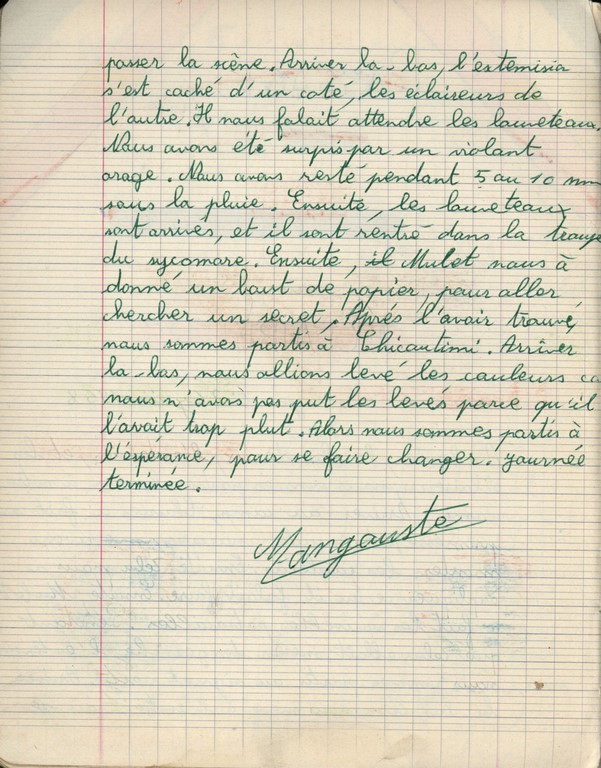 passer la scène. Arriver la-bas, l'extemisia
s'est caché d'un coté, les éclaireurs de
l'autre. Il nous falait attendre les louveteaux.
Nous avons été surpis par un violant
orage. Nous avons resté pendant 5 au 10 mn
sous la pluie. Ensuite, les louveteaux
sont arrivés, et il sont rentré dans la
du sycomore. Ensuite, il Mulot nous à
donné un bout de papier, pour aller
chercher un secret. Après l'avoir trouvé,
nous sommes partis à Chicoutimi. Arriver
la-bas, nous allions levé les couleurs
nous n'avois pas put les levés parce qu'il
l'avait trop plut. Alors nous sommes partis à
l'éspérance, pour se faire changer. journéé
terminée.
Mangouste